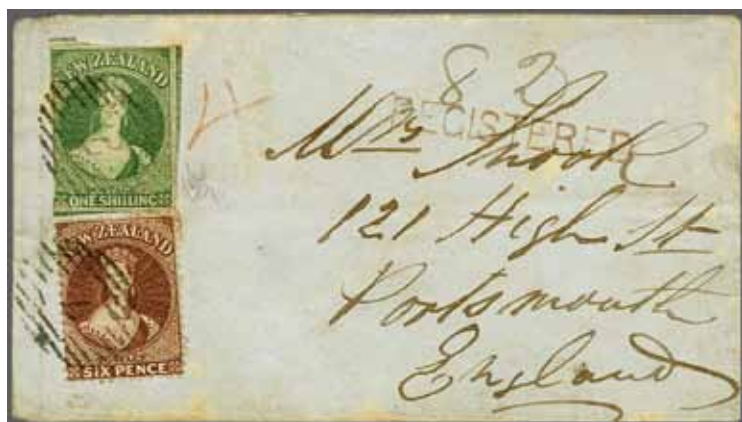 NEW ZEALAND
POSTAGE
ONE SHILLING
NEW ZEALAND
POSTAGE
SIX PENCE
4
8 2
REGISTERED
Mrs Shook
121 High St
Portsmouth
England